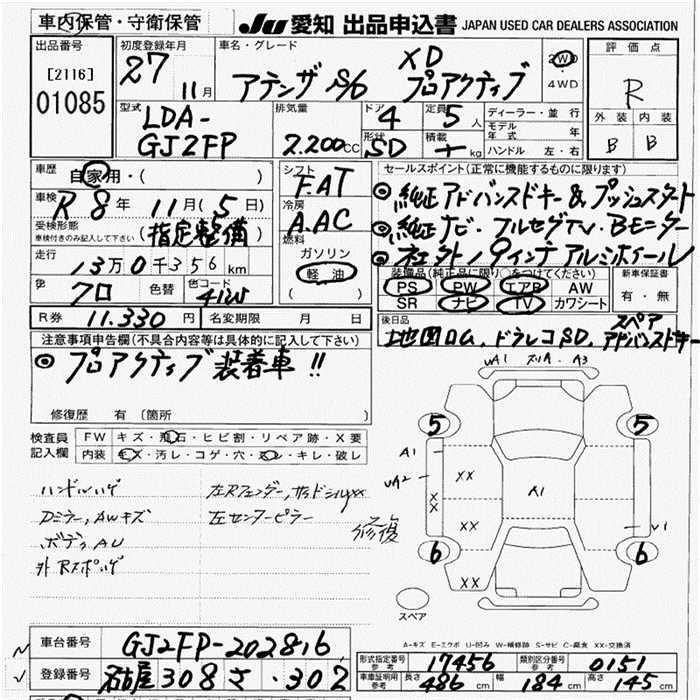 車内保管・守衛保管
JU 愛知 出品申込書 JAPAN USED CAR DEALERS ASSOCIATION
出品番号 [2116] 01085
初度登録年月 27 11月
車名・グレード アテンザ XD プロアクティブ
2WD 4WD
評価点 R
外装 内装
B B
型式 LDA-GJ2FP
排気量 2.200cc
ドア 4 定員 5人
形状 SD 積載 kg
ディーラー・並行
モデル年式 年
ハンドル 左・右
車歴 自家用・( )
車検 R8年 11月(5日)
受検形態 車検付きのみ記入して下さい (指定整備)
走行 13万0千356km
色 クロ 色替 色コード 41W
シフト FAT
冷房 A.AC
燃料 ガソリン 軽油 ( )
セールスポイント(正常に機能するものに限ります)
◎純正アドバンスドキー&プッシュスタート
◎純正ナビ・フルセグTV・Bモニター
◎社外19インチアルミホイール
装備品(純正品に限り○をつけてください)
PS PW エアB AW
SR ナビ TV カワシート
新車保証書 有・無
R券 11.330円 名変期限 月 日
後日品 地図ROM, ドラレコSD, スペアアドバンスドキー
注意事項申告欄(不具合内容等は具体的に記入して下さい)
◎プロアクティブ装着車!!
修復歴 有(箇所
検査員記入欄
FW キズ・飛石・ヒビ割・リペア跡・X要
内装 キズ・汚レ・コゲ・穴・スレ・キレ・破レ
ハンドルハゲ
Dミラー, AWキズ
ボディAU
左センターピラー
修復
A1 A3
5 5
A1
A2
XX
A1
XX
XX
6 6
XX
スペア
A=キズ E=エクボ U=凹み W=補修跡 S=サビ C=腐食 XX=交換済
車台番号 GJ2FP-202816
登録番号 名古屋 308 さ ・302
形式指定番号 参考 17456 類別区分番号 参考 0151
車庫証明用 参考 長さ 486cm 幅 184cm 高さ 145cm